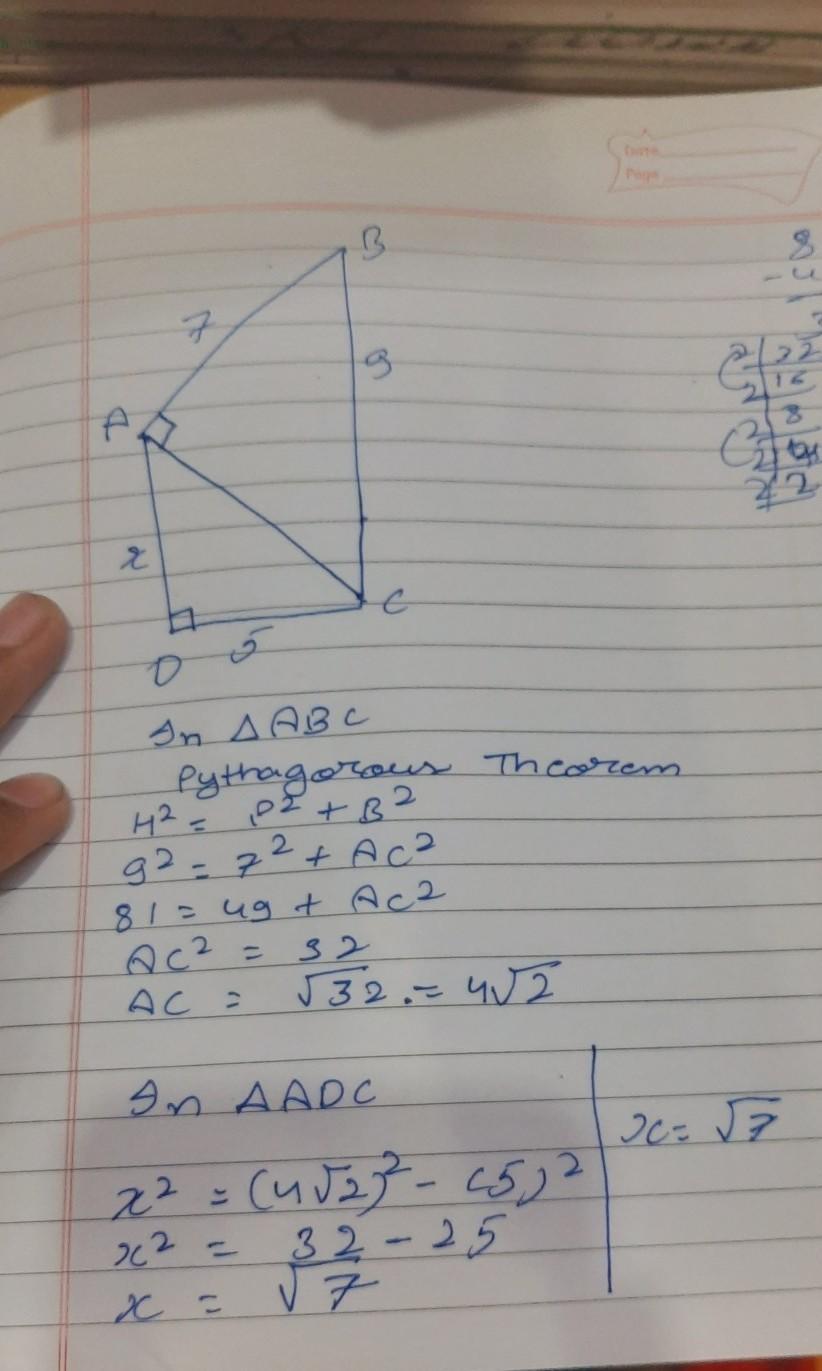 Date
Page
B
7
9
A
x
C
D
5
8
- 4
2 | 32
2 | 16
2 | 8
2 | 4
2 | 2
In △ABC
Pythagorous Theorem
H² = P² + B²
9² = 7² + AC²
81 = 49 + AC²
AC² = 32
AC = √32 . = 4√2
In △ADC
x² = (4√2)² - (5)²
x² = 32 - 25
x = √7
x = √7